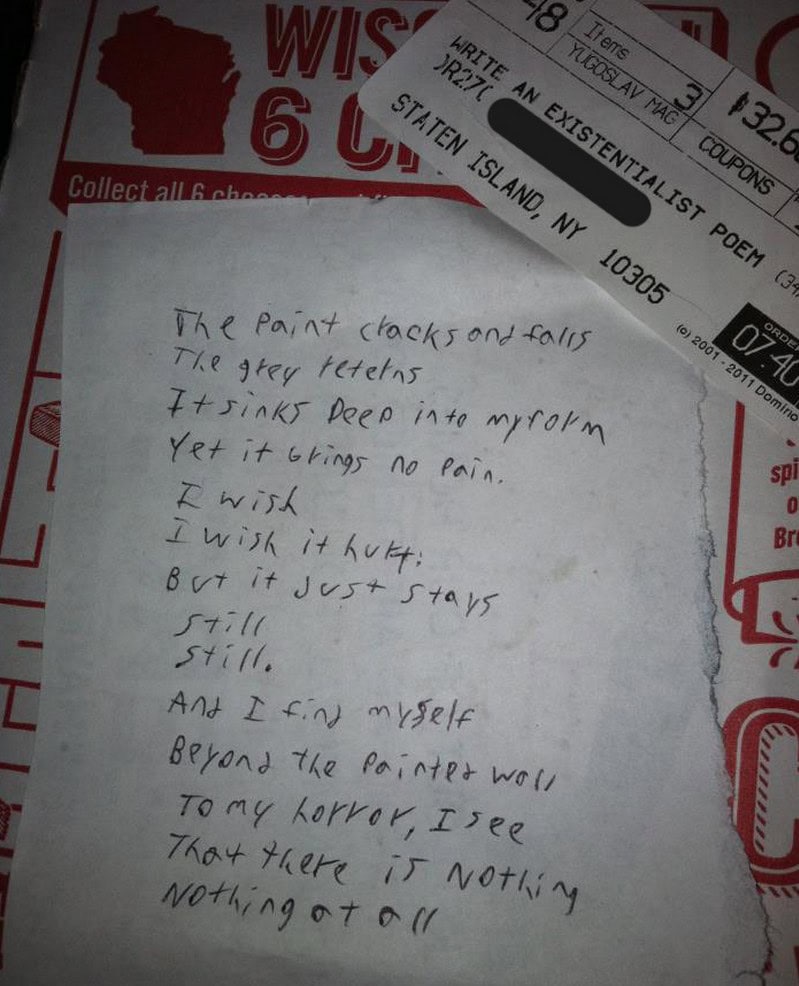 WIS
6 C
Collect all 6
48
Items
3
$32.6
YUGOSLAV MAG
COUPONS
WRITE AN EXISTENTIALIST POEM
(34
STATEN ISLAND, NY 10305
ORDE
07:40
(c) 2001 - 2011 Domino
spi
o
Bre
C
The Paint cracks and falls
The grey reterns
It sinks Deep into my form
Yet it brings no Pain.
I wish
I wish it hurt.
But it just stays
Still
Still.
And I find myself
Beyond the Painted wall
To my horror, I see
That there is Nothing
Nothing at all